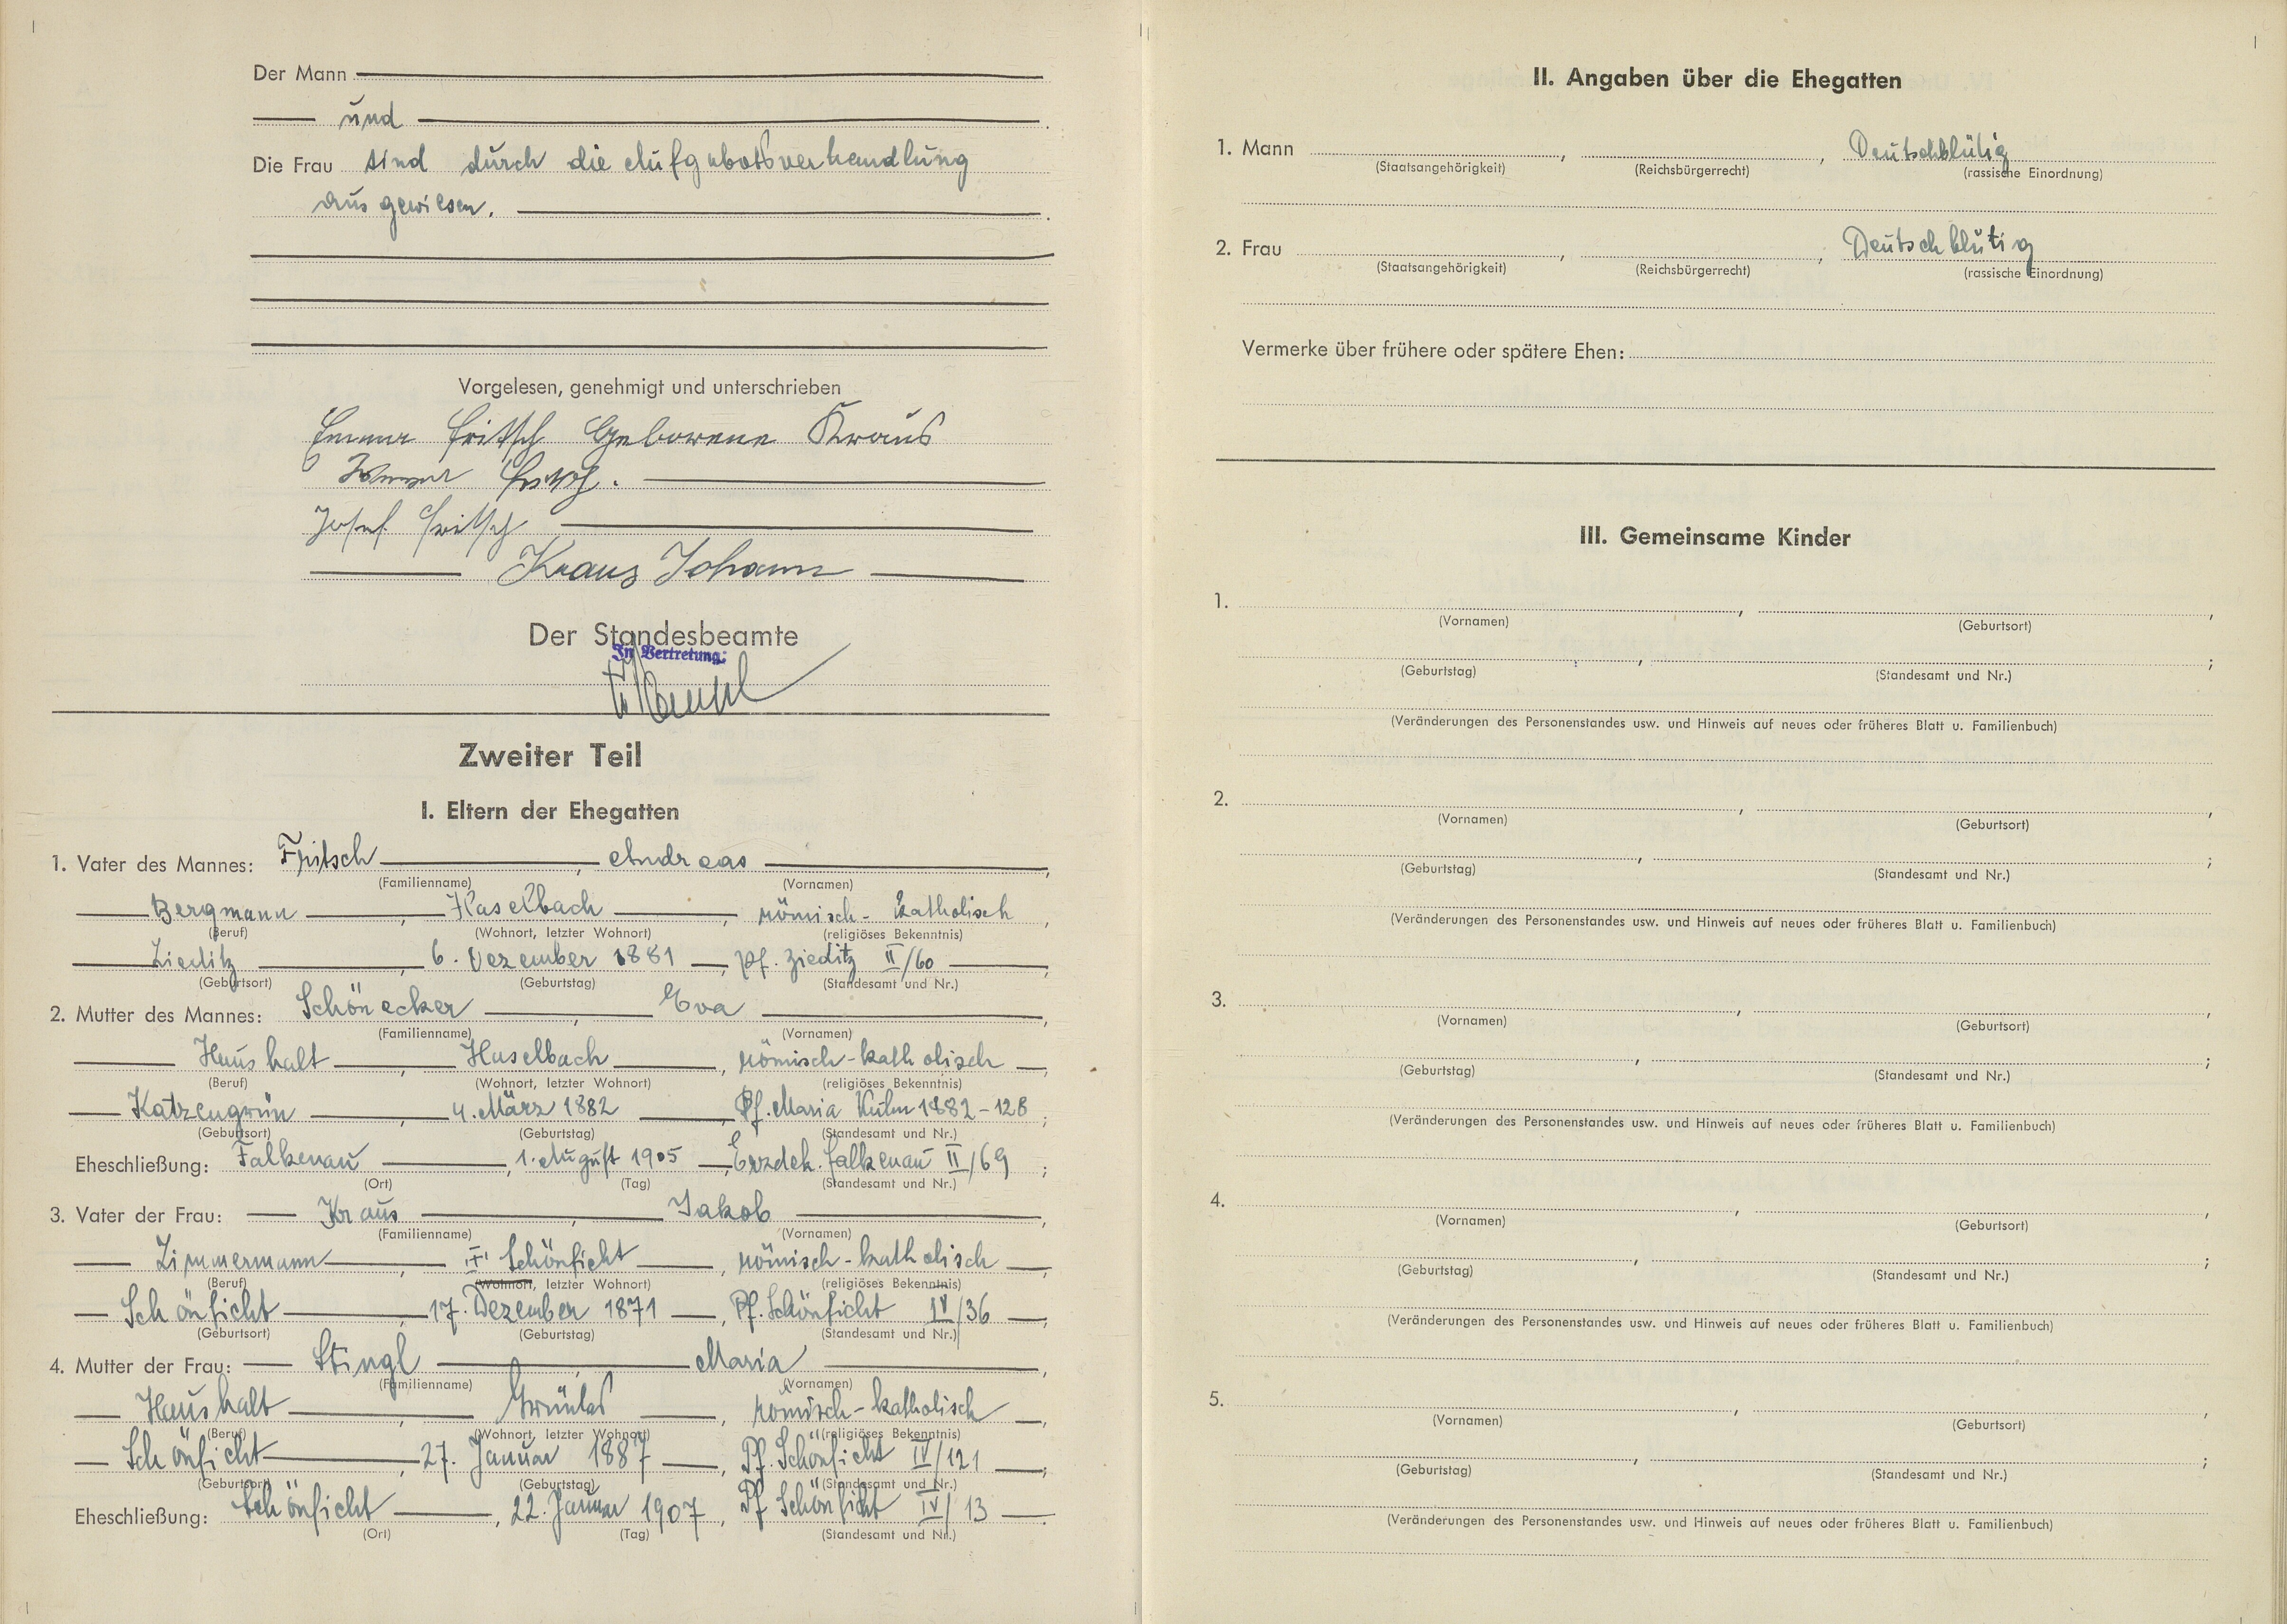 Der Mann
und
Die Frau sind durch die Aufgebotsverhandlung
ausgewiesen.
Vorgelesen, genehmigt und unterschrieben
Fritsch Geborene Kraus
Josef Fritsch
Kraus Johann
Der Standesbeamte
In Vertretung:
Zweiter Teil
I. Eltern der Ehegatten
1. Vater des Mannes: Fritsch, Andreas,
(Familienname) (Vornamen)
Bergmann, Haselbach, römisch-katholisch,
(Beruf) (Wohnort, letzter Wohnort) (religiöses Bekenntnis)
Zieditz, 6. Dezember 1881, Pf. Zieditz II/60,
(Geburtsort) (Geburtstag) (Standesamt und Nr.)
2. Mutter des Mannes: Schönecker, Eva,
(Familienname) (Vornamen)
Haushalt, Haselbach, römisch-katholisch,
(Beruf) (Wohnort, letzter Wohnort) (religiöses Bekenntnis)
Katzengrün, 4. März 1882, Pf. Maria Kulm 1882-128;
(Geburtsort) (Geburtstag) (Standesamt und Nr.)
Eheschließung: Falkenau, 1. August 1905, Erzdek. Falkenau II/69;
(Ort) (Tag) (Standesamt und Nr.)
3. Vater der Frau: Kraus, Jakob,
(Familienname) (Vornamen)
Zimmermann, "+" Schönficht, römisch-katholisch,
(Beruf) (Wohnort, letzter Wohnort) (religiöses Bekenntnis)
Schönficht, 17. Dezember 1871, Pf. Schönficht IV/36,
(Geburtsort) (Geburtstag) (Standesamt und Nr.)
4. Mutter der Frau: Stingl, Maria,
(Familienname) (Vornamen)
Haushalt, Grünlas, römisch-katholisch,
(Beruf) (Wohnort, letzter Wohnort) (religiöses Bekenntnis)
Schönficht, 27. Januar 1887, Pf. Schönficht IV/121;
(Geburtsort) (Geburtstag) (Standesamt und Nr.)
Eheschließung: Schönficht, 22. Januar 1907, Pf Schönficht IV/13.
(Ort) (Tag) (Standesamt und Nr.)
II. Angaben über die Ehegatten
1. Mann , , Deutschblütig
(Staatsangehörigkeit) (Reichsbürgerrecht) (rassische Einordnung)
2. Frau , , Deutschblütig
(Staatsangehörigkeit) (Reichsbürgerrecht) (rassische Einordnung)
Vermerke über frühere oder spätere Ehen:
III. Gemeinsame Kinder
1. , ,
(Vornamen) (Geburtsort)
, ;
(Geburtstag) (Standesamt und Nr.)
(Veränderungen des Personenstandes usw. und Hinweis auf neues oder früheres Blatt u. Familienbuch)
2. , ,
(Vornamen) (Geburtsort)
, ;
(Geburtstag) (Standesamt und Nr.)
(Veränderungen des Personenstandes usw. und Hinweis auf neues oder früheres Blatt u. Familienbuch)
3. , ,
(Vornamen) (Geburtsort)
, ;
(Geburtstag) (Standesamt und Nr.)
(Veränderungen des Personenstandes usw. und Hinweis auf neues oder früheres Blatt u. Familienbuch)
4. , ,
(Vornamen) (Geburtsort)
, ;
(Geburtstag) (Standesamt und Nr.)
(Veränderungen des Personenstandes usw. und Hinweis auf neues oder früheres Blatt u. Familienbuch)
5. , ,
(Vornamen) (Geburtsort)
, ;
(Geburtstag) (Standesamt und Nr.)
(Veränderungen des Personenstandes usw. und Hinweis auf neues oder früheres Blatt u. Familienbuch)